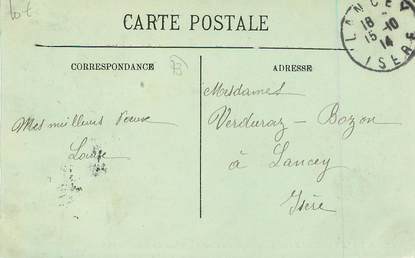 CARTE POSTALE
CORRESPONDANCE
Mes meilleurs vœux
Louise
ADRESSE
Mesdames
Verduraz - Bozon
à Lancey
Isère
LANCEY
18
15-10
14
ISÈRE
B